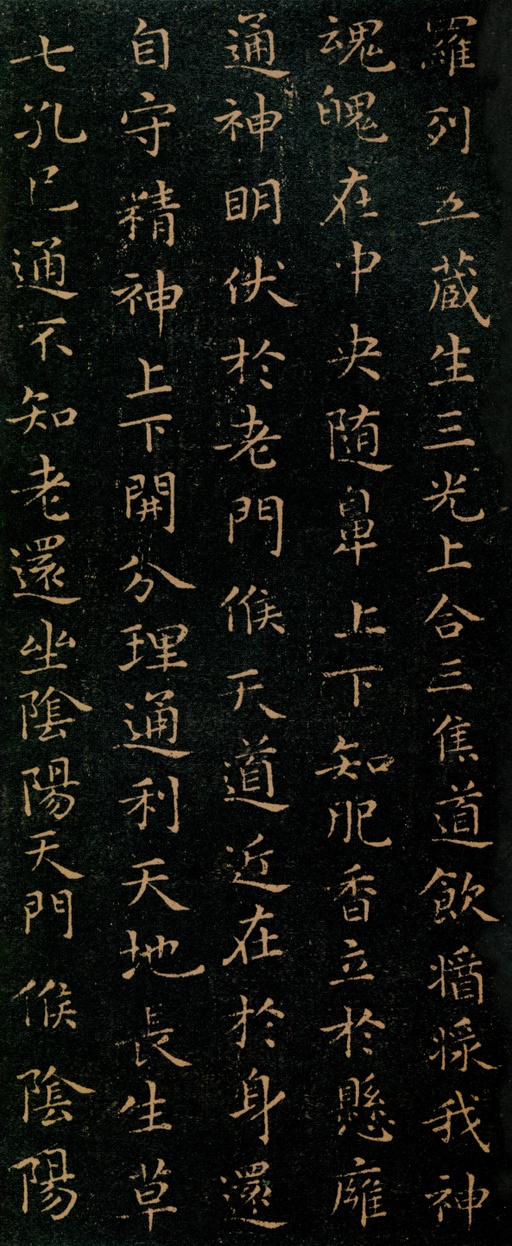 羅列五蔵生三光上合三焦道飲醬漿我神
魂魄在中央随鼻上下知肥香立於懸廱
通神明伏於老門候天道近在於身還
自守精神上下開分理通利天地長生草
七孔已通不知老還坐陰陽天門候陰陽